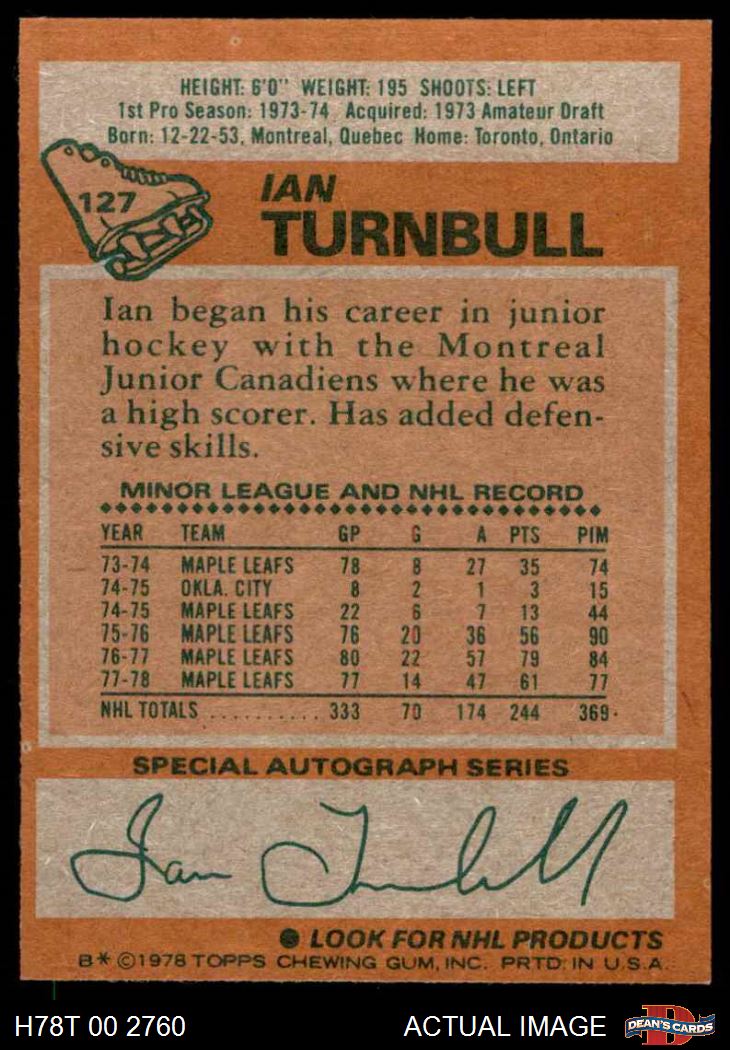 HEIGHT: 6'0" WEIGHT: 195 SHOOTS: LEFT
1st Pro Season: 1973-74 Acquired: 1973 Amateur Draft
Born: 12-22-53, Montreal, Quebec Home: Toronto, Ontario
127
IAN
TURNBULL
Ian began his career in junior
hockey with the Montreal
Junior Canadiens where he was
a high scorer. Has added defen-
sive skills.
MINOR LEAGUE AND NHL RECORD
YEAR TEAM GP G A PTS PIM
73-74 MAPLE LEAFS 78 8 27 35 74
74-75 OKLA. CITY 8 2 1 3 15
74-75 MAPLE LEAFS 22 6 7 13 44
75-76 MAPLE LEAFS 76 20 36 56 90
76-77 MAPLE LEAFS 80 22 57 79 84
77-78 MAPLE LEAFS 77 14 47 61 77
NHL TOTALS .......... 333 70 174 244 369
SPECIAL AUTOGRAPH SERIES
Ian Turnbull
● LOOK FOR NHL PRODUCTS
B* ©1978 TOPPS CHEWING GUM, INC. PRTD. IN U.S.A.
H78T 00 2760 ACTUAL IMAGE
D
DEAN'S CARDS